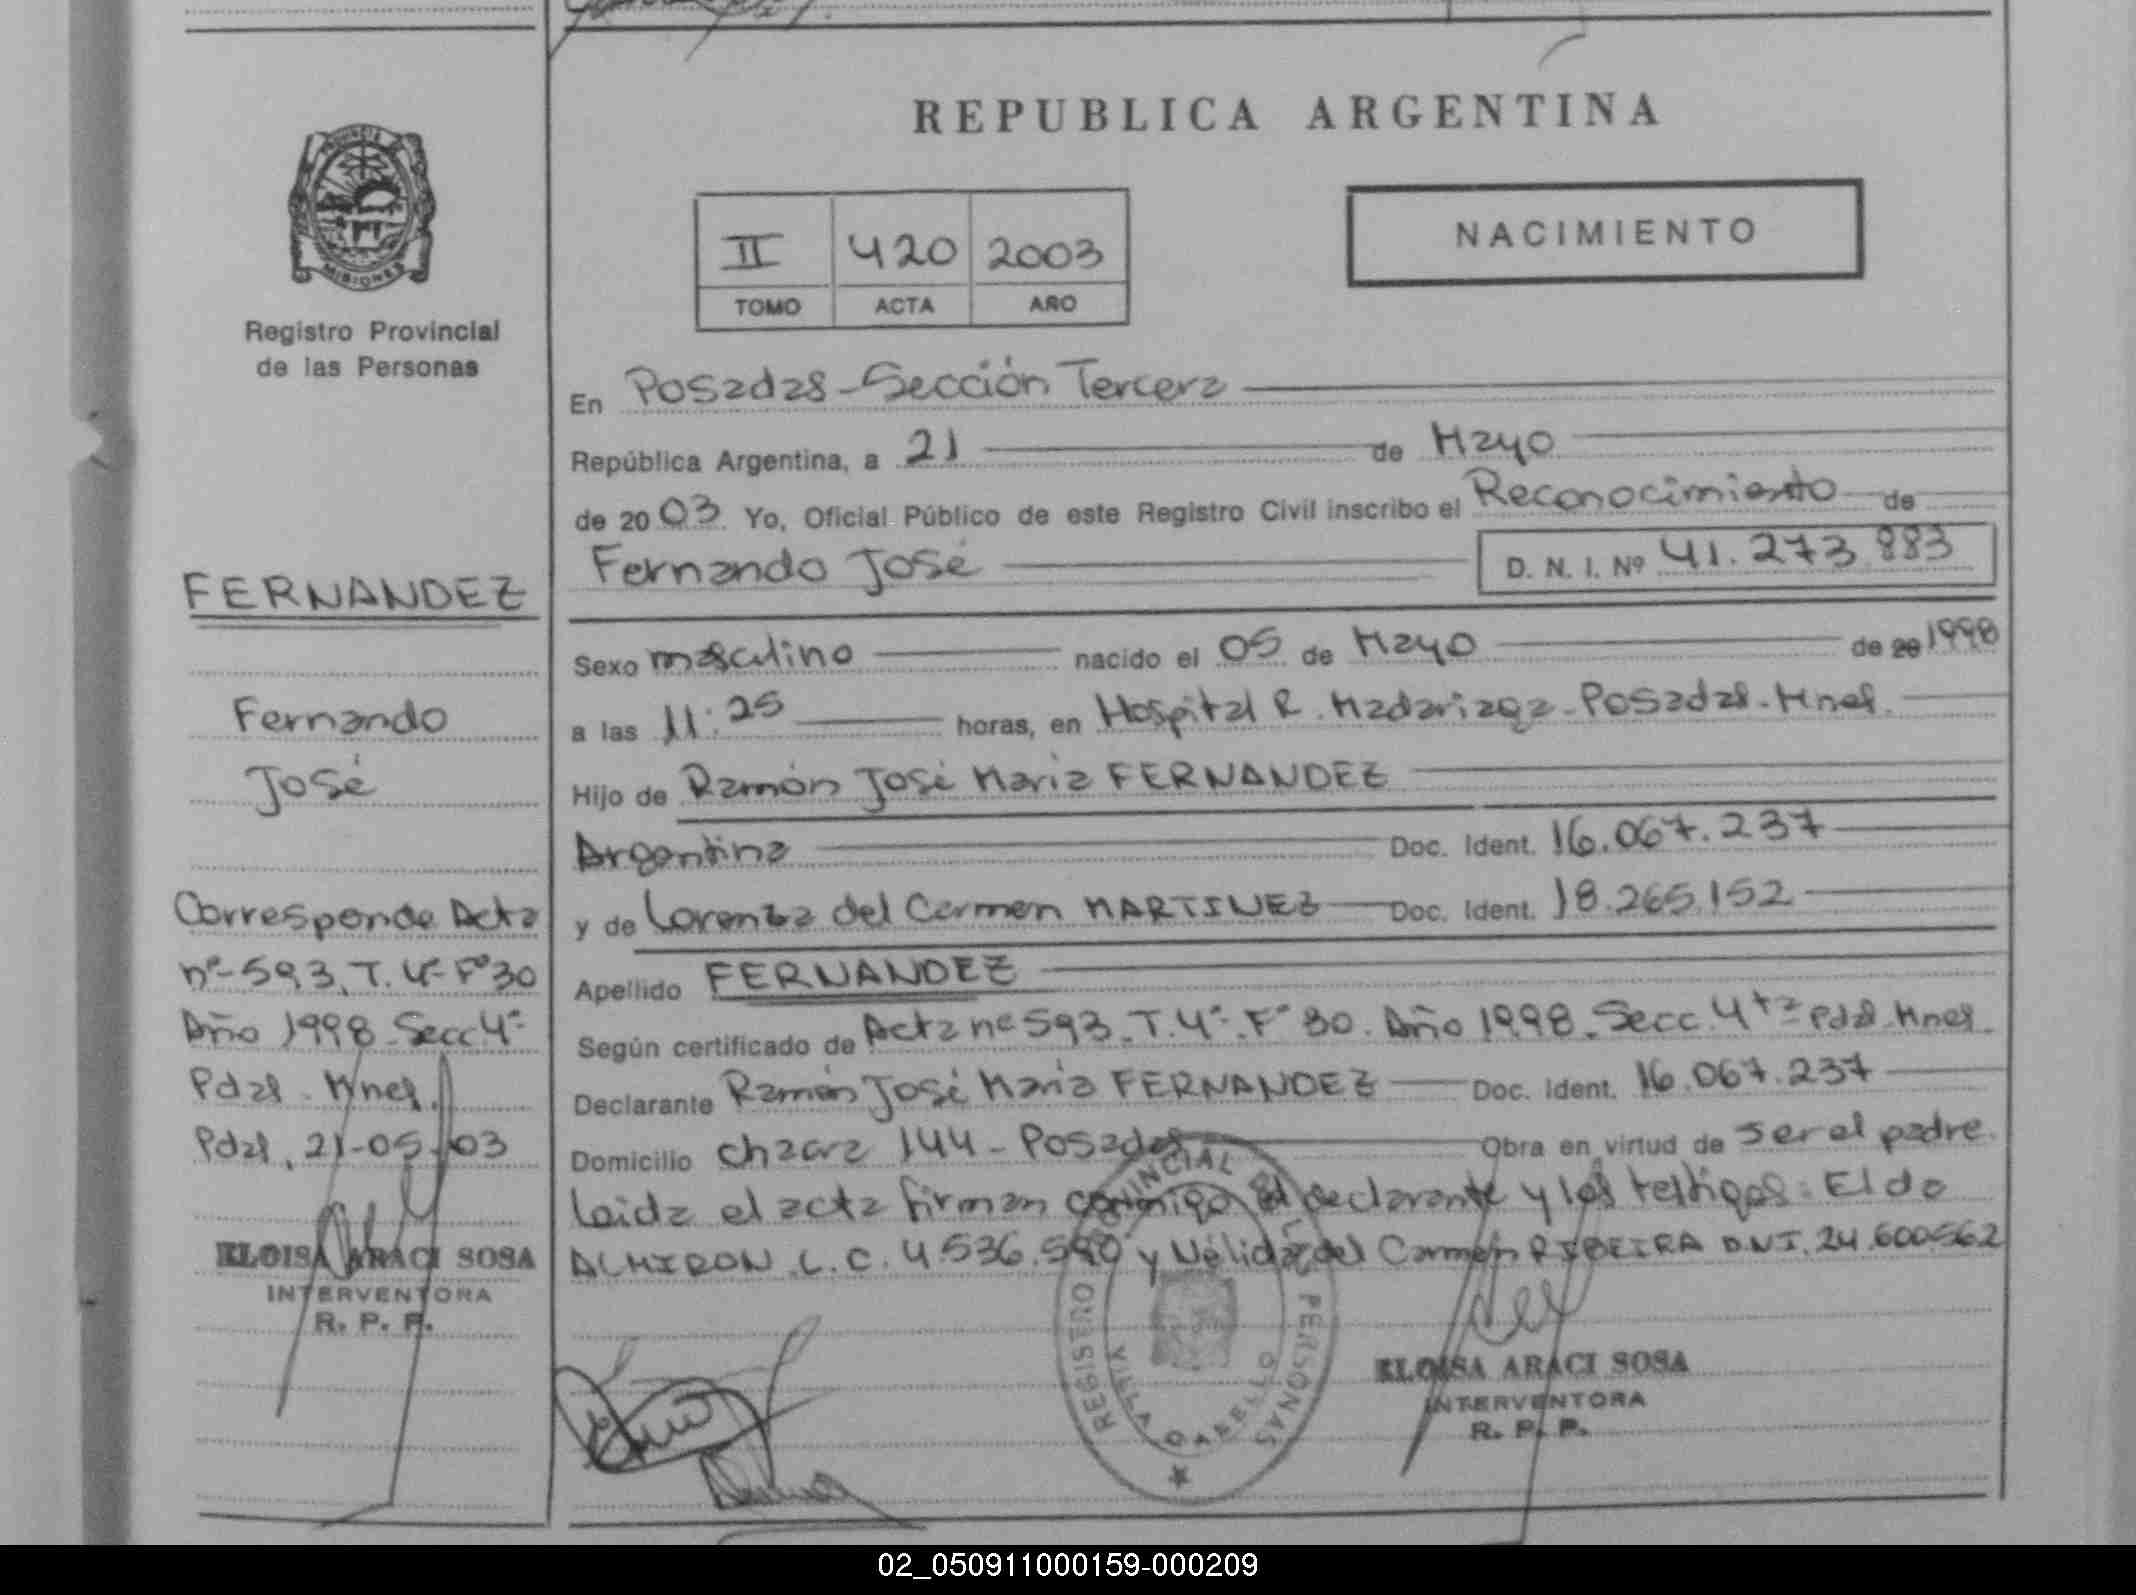 REPUBLICA ARGENTINA
PROVINCIA
MISIONES
Registro Provincial
de las Personas
II 420 2003
TOMO ACTA AÑO
NACIMIENTO
En Posadas - Sección Tercera
República Argentina, a 21 de Mayo
de 2003. Yo, Oficial Público de este Registro Civil inscribo el Reconocimiento de
Fernando José D. N. I. Nº 41.273.883
Sexo masculino nacido el 05 de Mayo de 20 1998
a las 11:25 horas, en Hospital R. Madariaga - Posadas - Mnes.
Hijo de Ramón José Maria FERNANDEZ
Argentina Doc. Ident. 16.067.237
y de Lorenza del Carmen MARTINEZ Doc. Ident. 18.265.152
Apellido FERNANDEZ
Según certificado de Acta nº 593. T. 4º. Fº 30. Año 1998. Secc. 4ta Pdas. Mnes.
Declarante Ramón José Maria FERNANDEZ Doc. Ident. 16.067.237
Domicilio chacra 144 - Posadas Obra en virtud de ser el padre.
Leida el acta firman conmigo el declarante y los testigos: Eldo
ALMIRON L.C. 4.536.590 y Nélida del Carmen RIBEIRA D.N.I. 24.600.562
FERNANDEZ
Fernando
José
Corresponde Acta
nº 593. T. 4º Fº 30
Año 1998. Secc. 4º
Pdas. Mnes.
Pdas, 21-05-03
ELOISA ARACI SOSA
INTERVENTORA
R. P. P.
REGISTRO PROVINCIAL DE LAS PERSONAS
VILLA CABELLO
ELOISA ARACI SOSA
INTERVENTORA
R. P. P.
02_050911000159-000209